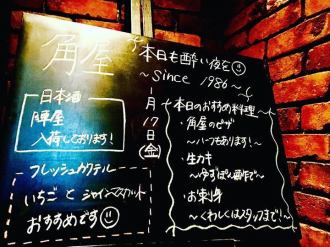 角屋
本日も酔い夜を
〜since 1986〜
1月17日(金)
日本酒
陣屋
入荷しております!
フレッシュカクテル
いちごとシャインマスカット
おすすめです
〜本日のおすすめ料理〜
・角屋のピザ
〜ハーフもあります!〜
・生カキ
〜ゆずぽん酢で〜
・お刺身
〜くわしくはスタッフまで!〜